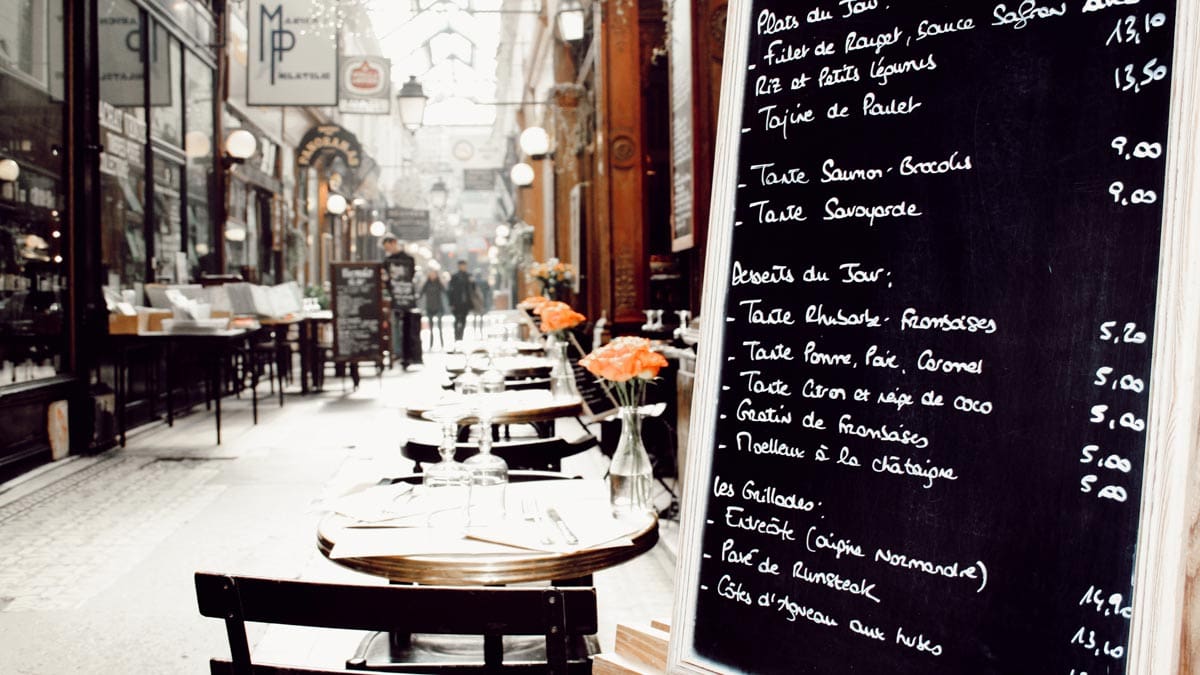 Plats du Jour:
- Filet de Rouget, Sauce Safran
13,10
Riz et Petits légumes
13,50
- Tajine de Poulet
9,00
- Tarte Saumon-Brocolis
9,00
- Tarte Savoyarde
Desserts du Jour:
- Tarte Rhubarbe-Framboises
5,20
- Tarte Pomme, Poire, Caramel
5,00
- Tarte Citron et noix de coco
5,00
- Gratin de Framboises
5,00
- Moelleux à la châtaigne
5,00
Les Grillades:
- Entrecôte (origine Normandie)
14,90
- Pavé de Rumsteak
13,10
- Côtes d'Agneau aux herbes
MP
PHILATELIE
PANORAMAS